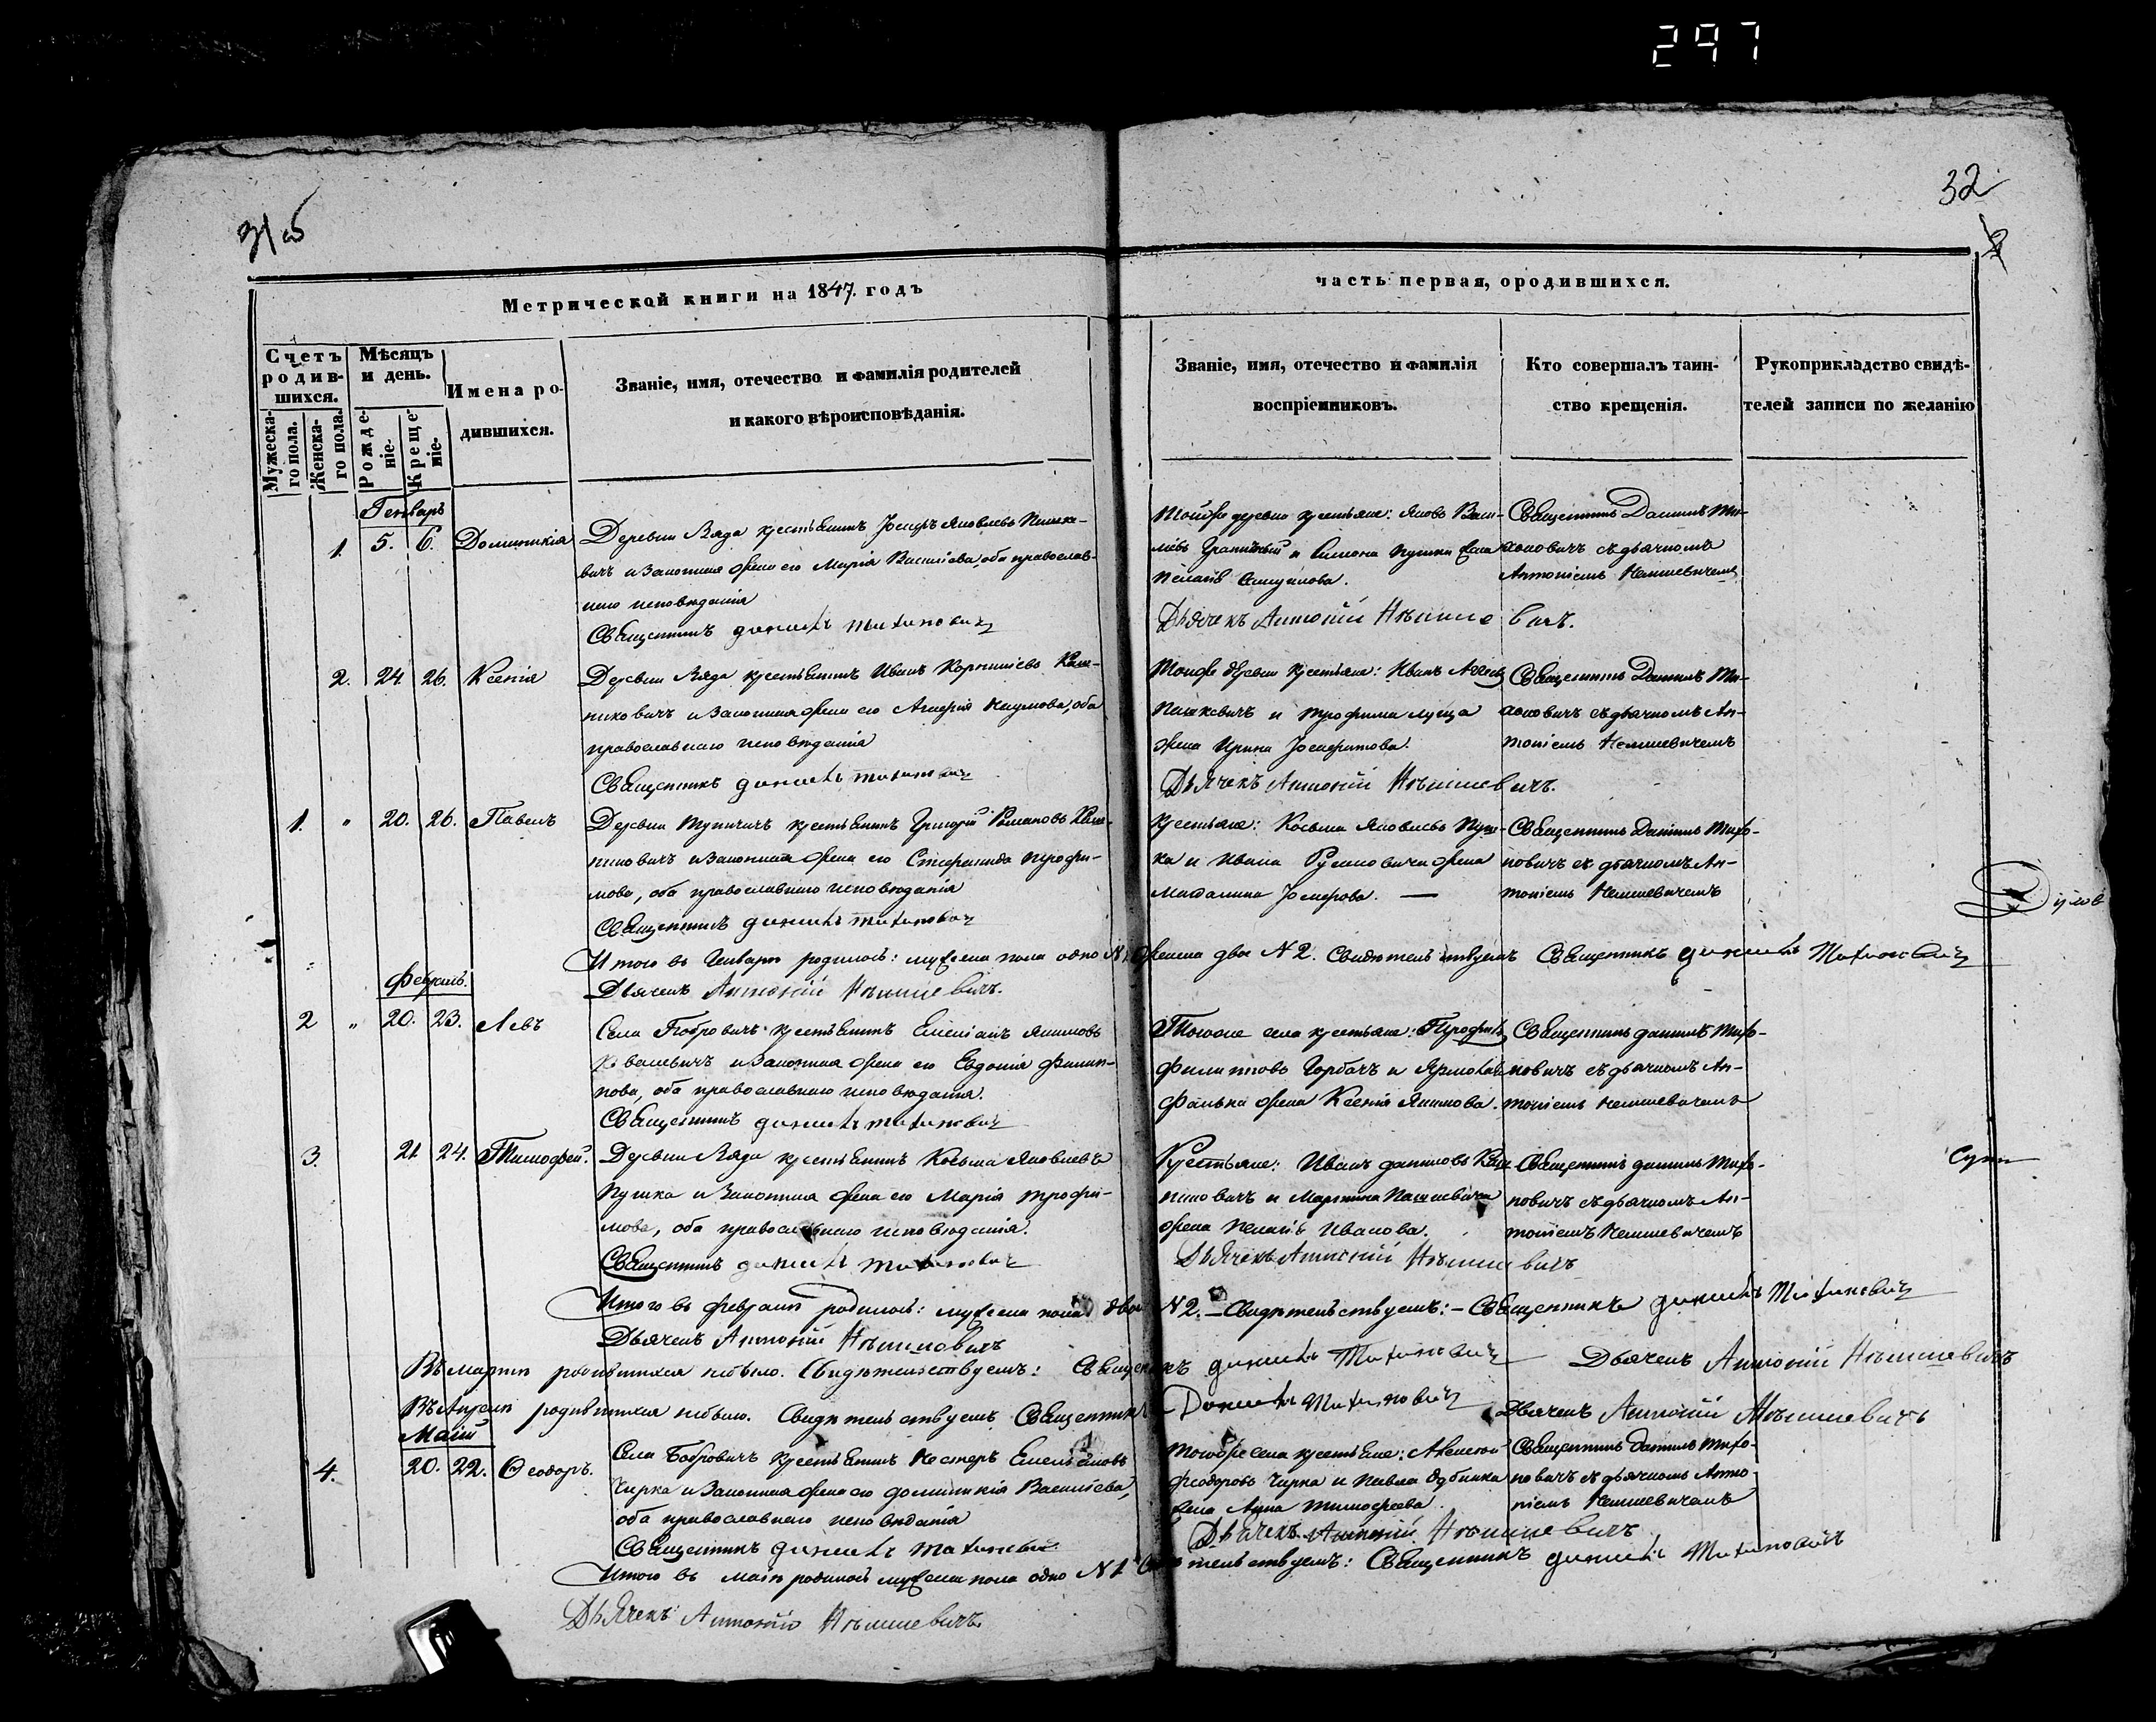 297
31 об
32
2
Метрической книги на 1847. годъ
часть первая, ородившихся.
Счетъ родив-
шихся.
Мужеска-
го пола.
Женска-
го пола.
Мѣсяцъ
и день.
Рожде-
ніе.
Креще-
ніе.
Имена ро-
дившихся.
Званіе, имя, отечество и фамилія родителей
и какого вѣроисповѣданія.
Званіе, имя, отечество и фамилія
воспріемниковъ.
Кто совершалъ таин-
ство крещенія.
Рукоприкладство свидѣ-
телей записи по желанію
Генварь
1. 5. 6. Доминикія
Деревни Вяда крестьянинъ Іосифъ Яковлевъ
вичъ и Законная жена его Марія Васильева, оба православ-
наго исповѣданія
Священникъ Даниилъ Тихоновичъ
Тойже деревни крестьяне: Яковъ Васи-
левъ и Симеона Пушки жена
Самуилова.
Священникъ Даниилъ Ти-
хоновичъ съ дьячкомъ
Антоніемъ Немшевичемъ
Дьячекъ Антоній Нѣмшевичъ.
2. 24. 26. Ксенія
Деревни Вяда крестьянинъ Иванъ Корниліевъ
никовичъ и Законная жена его Наумова, оба
православнаго исповѣданія
Священникъ Даниилъ Тихоновичъ
Тойже деревни крестьяне: Иванъ
Пашкевичъ и Трофима Луща
жена Ирина
Священникъ Даниилъ Ти-
хоновичъ съ дьячкомъ Ан-
тоніемъ Немшевичемъ
Дьячекъ Антоній Нѣмшевичъ.
1. " 20. 26. Павелъ
Деревни Тупичичъ крестьянинъ Григорій Романовъ
никовичъ и Законная жена его Стефанида Трофи-
мова, оба православнаго исповѣданія
Священникъ Даниилъ Тихоновичъ
Крестьяне: Косьма Яковлевъ Пуш-
ка и Ивана жена
Магдалина Іосифова. —
Священникъ Даниилъ Тихо-
новичъ съ дьячкомъ Ан-
тоніемъ Немшевичемъ
Итого въ Генварѣ родилось: мужеска пола одно N 1. женска два N 2. Свидѣтельствуемъ Священникъ Даниилъ Тихоновичъ
Дьячекъ Антоній Нѣмшевичъ.
Февраль.
2 " 20. 23. Левъ
Села Бобровичъ крестьянинъ Емеліанъ Якимовъ
и Законная жена его Евдокія Филип-
пова, оба православнаго исповѣданія.
Священникъ Даниилъ Тихоновичъ
Тогоже села крестьяне:
Филиповъ Горбачъ и
жена Ксенія Якимова.
Священникъ Даниилъ Тихо-
новичъ съ дьячкомъ Ан-
тоніемъ Немшевичемъ
3. 21. 24. Тимофей.
Деревни Вяда крестьянинъ Косьма Яковлевъ
Пушка и Законная жена его Марія Трофи-
мова, оба православнаго исповѣданія.
Священникъ Даниилъ Тихоновичъ
Крестьяне: Иванъ Даниловъ
никовичъ и Мартина Пашкевича
жена Иванова.
Священникъ Даниилъ Тихо-
новичъ съ дьячкомъ Ан-
тоніемъ Немшевичемъ
Дьячекъ Антоній Нѣмшевичъ
Итого въ Февралѣ родилось: мужеска пола два N 2. — Свидѣтельствуемъ: — Священникъ Даниилъ Тихоновичъ
Дьячекъ Антоній Нѣмшевичъ
Въ Мартѣ родившихся небыло. Свидѣтельствуемъ: Священникъ Даниилъ Тихоновичъ Дьячекъ Антоній Нѣмшевичъ
Въ Апрелѣ родившихся небыло. Свидѣтельствуемъ Священникъ Даниилъ Тихоновичъ Дьячекъ Антоній Нѣмшевичъ
Маій
4. 20. 22. Ѳеодоръ.
Села Бобровичъ крестьянинъ Нестеръ Емельяновъ
Чирка и Законная жена его Доминикія Васильева,
оба православнаго исповѣданія
Священникъ Даниилъ Тихоновичъ
Тогоже села крестьяне: Алексей
Феодоровъ Чирка и Павла
жена Анна Тимофеева.
Священникъ Даниилъ Тихо-
новичъ съ дьячкомъ Анто-
ніемъ Немшевичемъ
Дьячекъ Антоній Нѣмшевичъ
Итого въ Маіѣ родилось мужеска пола одно N 1 Свидѣтельствуемъ: Священникъ Даниилъ Тихоновичъ
Дьячекъ Антоній Нѣмшевичъ.